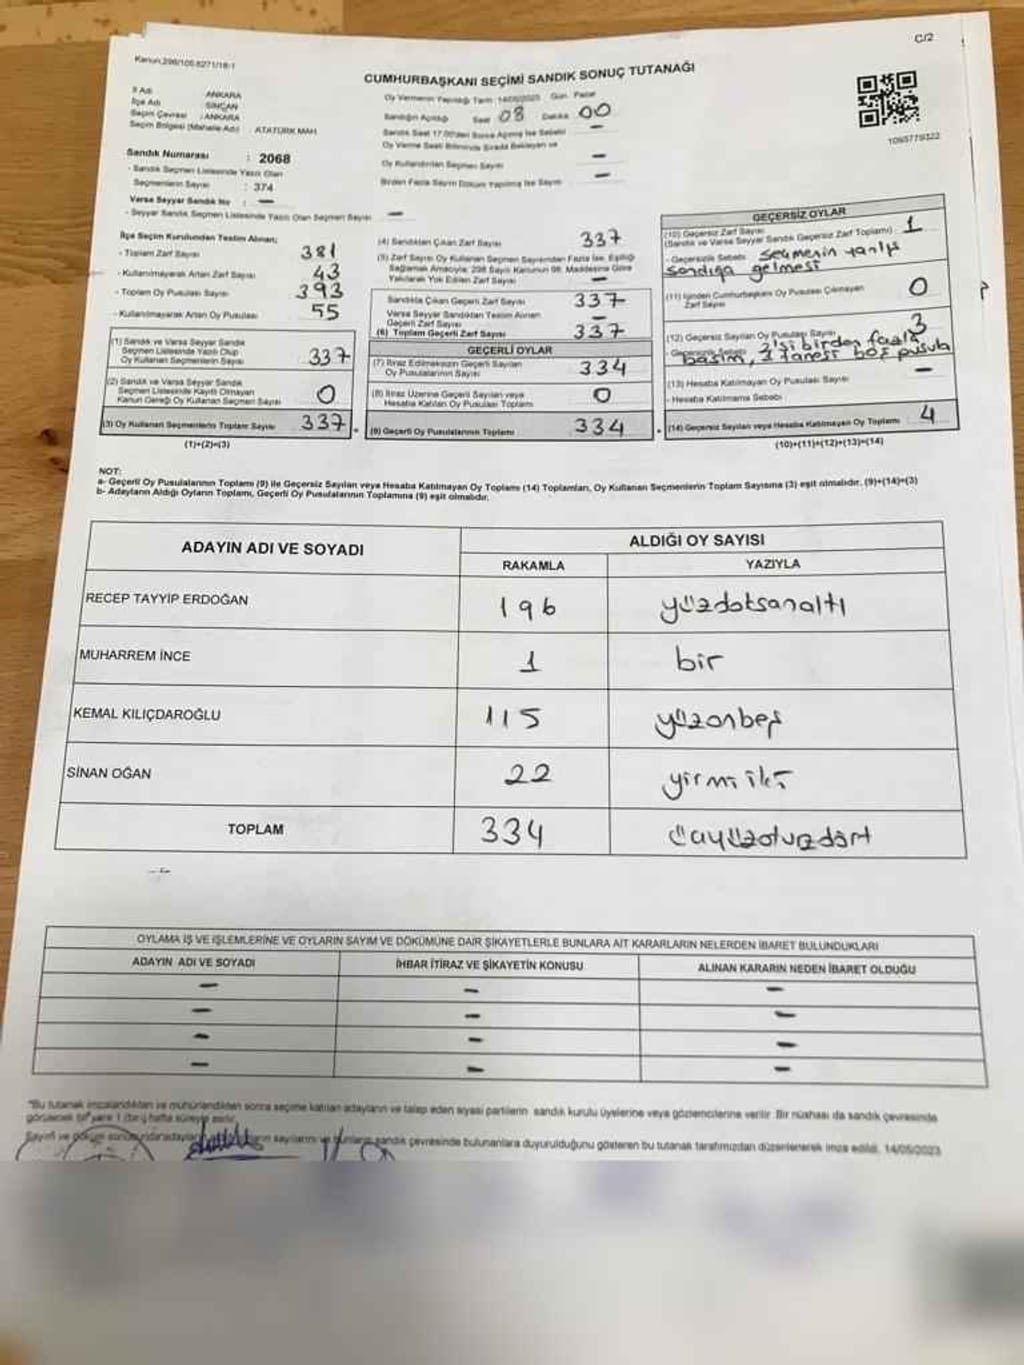 C/2
Kanun,298/105 6271/18-1
CUMHURBAŞKANI SEÇİMİ SANDIK SONUÇ TUTANAĞI
İl Adı ANKARA
İlçe Adı SİNCAN
Seçim Çevresi : ANKARA
Seçim Bölgesi (Mahalle Adı) : ATATÜRK MAH.
Sandık Numarası : 2068
- Sandık Seçmen Listesinde Yazılı Olan
Seçmenlerin Sayısı : 374
Varsa Seyyar Sandık No : —
- Seyyar Sandık Seçmen Listesinde Yazılı Olan Seçmen Sayısı —
Oy Vermenin Yapıldığı Tarih 14/05/2023 Gün Pazar
Sandığın Açıldığı Saat 08 Dakika 00
Sandık Saat 17.00'den Sonra Açılmış İse Sebebi —
Oy Verme Saati Bitiminde Sırada Bekleyen ve
Oy Kullandırılan Seçmen Sayısı —
Birden Fazla Sayım Döküm Yapılmış İse Sayısı —
1093779322
İlçe Seçim Kurulundan Teslim Alınan;
- Toplam Zarf Sayısı 381
- Kullanılmayarak Artan Zarf Sayısı 43
- Toplam Oy Pusulası Sayısı 393
- Kullanılmayarak Artan Oy Pusulası 55
(1) Sandık ve Varsa Seyyar Sandık
Seçmen Listesinde Yazılı Olup
Oy Kullanan Seçmenlerin Sayısı 337
(2) Sandık ve Varsa Seyyar Sandık
Seçmen Listesinde Kayıtlı Olmayan
Kanun Gereği Oy Kullanan Seçmen Sayısı 0
(3) Oy Kullanan Seçmenlerin Toplam Sayısı 337
(1)+(2)=(3)
(4) Sandıktan Çıkan Zarf Sayısı 337
(5) Zarf Sayısı Oy Kullanan Seçmen Sayısından Fazla İse, Eşitliği
Sağlamak Amacıyla; 298 Sayılı Kanunun 98. Maddesine Göre
Yakılarak Yok Edilen Zarf Sayısı —
Sandıkta Çıkan Geçerli Zarf Sayısı 337
Varsa Seyyar Sandıktan Teslim Alınan
Geçerli Zarf Sayısı —
(6) Toplam Geçerli Zarf Sayısı 337
GEÇERLİ OYLAR
(7) İtiraz Edilmeksizin Geçerli Sayılan
Oy Pusulalarının Sayısı 334
(8) İtiraz Üzerine Geçerli Sayılan veya
Hesaba Katılan Oy Pusulası Toplamı 0
(9) Geçerli Oy Pusulalarının Toplamı 334
GEÇERSİZ OYLAR
(10) Geçersiz Zarf Sayısı
(Sandık ve Varsa Seyyar Sandık Geçersiz Zarf Toplamı) : 1
- Geçersizlik Sebebi Seçmenin yanlış
sandığa gelmesi
(11) İçinden Cumhurbaşkanı Oy Pusulası Çıkmayan
Zarf Sayısı 0
(12) Geçersiz Sayılan Oy Pusulası Sayısı 3
- Geçersizlik Sebebi 2'si birden fazla
basım, 1 tanesi boş pusula
(13) Hesaba Katılmayan Oy Pusulası Sayısı —
- Hesaba Katılmama Sebebi
(14) Geçersiz Sayılan veya Hesaba Katılmayan Oy Toplamı 4
(10)+(11)+(12)+(13)=(14)
NOT:
a- Geçerli Oy Pusulalarının Toplamı (9) ile Geçersiz Sayılan veya Hesaba Katılmayan Oy Toplamı (14) Toplamları, Oy Kullanan Seçmenlerin Toplam Sayısına (3) eşit olmalıdır. (9)+(14)=(3)
b- Adayların Aldığı Oyların Toplamı, Geçerli Oy Pusulalarının Toplamına (9) eşit olmalıdır.
ADAYIN ADI VE SOYADI ALDIĞI OY SAYISI
RAKAMLA YAZIYLA
RECEP TAYYİP ERDOĞAN 196 yüzdoksanaltı
MUHARREM İNCE 1 bir
KEMAL KILIÇDAROĞLU 115 yüzonbeş
SİNAN OĞAN 22 yirmi iki
TOPLAM 334 üçyüzotuzdört
OYLAMA İŞ VE İŞLEMLERİNE VE OYLARIN SAYIM VE DÖKÜMÜNE DAİR ŞİKAYETLERLE BUNLARA AİT KARARLARIN NELERDEN İBARET BULUNDUKLARI
ADAYIN ADI VE SOYADI İHBAR İTİRAZ VE ŞİKAYETİN KONUSU ALINAN KARARIN NEDEN İBARET OLDUĞU
— — —
— — —
— — —
— — —
"Bu tutanak imzalandıktan ve mühürlendikten sonra seçime katılan adayların ve talep eden siyasi partilerin sandık kurulu üyelerine veya gözlemcilerine verilir. Bir nüshası da sandık çevresinde
görülecek bir yere 1 (bir) hafta süreyle asılır.
Sayım ve döküm sayıların ve bunların sandık çevresinde bulunanlara duyurulduğunu gösteren bu tutanak tarafımızdan düzenlenerek imza edildi. 14/05/2023